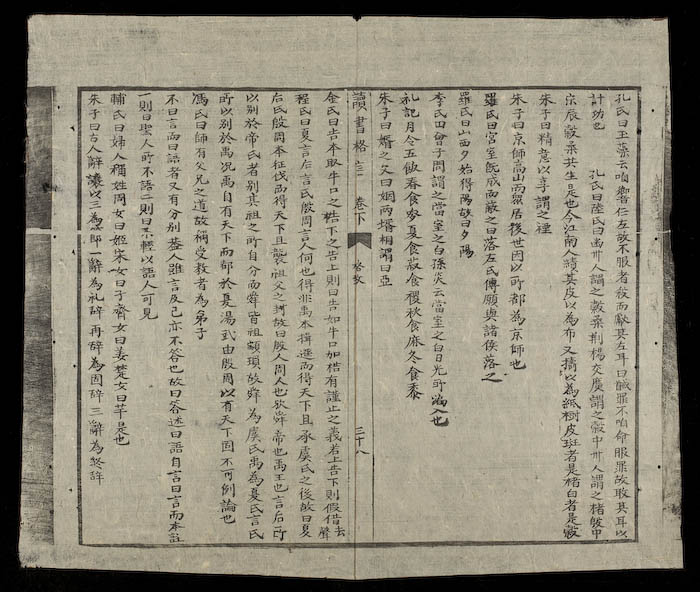 孔氏曰玉藻云凡嚮仁左殺不服者殺而獻其左耳曰馘罪不凡命服罪故取其耳以
計功也　孔氏曰陸氏曰幽卅人謂之榖桑荆楊交廣謂之榖中卅人謂之楮殷中
宗辰榖桑共生是也今江南人績其皮以為布又擣以為紙樹皮斑者是楮白者是榖
朱子曰精意以享謂之禋
朱子曰京師高山而衆居後世因以所都為京師也
羅氏曰宮室旣成而祭之曰落左氏傳願與諸侯落之
羅氏曰山西夕始得陽故曰夕陽
李氏曰曾子問謂之當室之白孫炎云當室之白日光所漏入也
礼記月令五飯春食麥夏食菽食稷秋食麻冬食黍
朱子曰婿之父曰姻兩壻相謂曰亞
讀書格言 卷下 三十八
金氏曰告本取牛口之牿下之告上則曰告如牛口如牿有謹止之義若上告下則假借去聲
程氏曰夏言后言氏殷周言人何也得非禹本揖遜而得天下且承虞氏之後故曰夏
后氏殷周本征伐而得天下且襲祖父之封故曰殷人周人也欤舜帝也禹王也言后所
以別於帝氏者別其祖之所自分而舜皆祖顓頊故舜為虞氏禹為夏氏言氏
所以別於禹况禹自有天下而都於夏湯武由殷周以有天下固不可例論也
馮氏曰師有父兄之道故稱受教者為弟子
不曰言而曰語者又有分別蓋人雖言及己亦不答也故曰答述曰語自言曰言而本註
一則曰聖人所不語二則曰不輕以語人可見
輔氏曰婦人稱姓周女曰姬宋女曰子齊女曰姜楚女曰芊是也
朱子曰古人辭讓以三為節一辭為礼辞再辞為固辞三辭為終辞